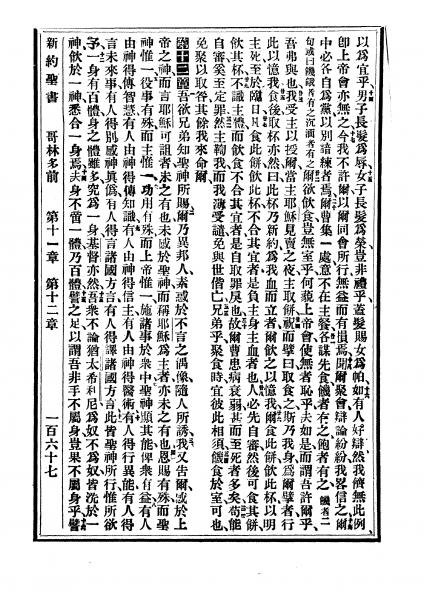 以爲宜乎男子長髮爲辱女子長髮爲榮豈非禮乎蓋髮賜女爲帕如有人好辯然我儕無此例
卽上帝會亦無之今我不許爾以爾同會所行無益而有損焉聞爾聚會辯論紛紛我畧信之爾
中必各自爲黨以別諳練者焉爾曹集一處意不在主餐各謀先食饑者有之飽者有之 饑者二
句或曰饑餓者有之沉湎者有之爾欲飲食豈無室乎何藐上帝會使無者恥乎夫如是而謂吾許爾乎
吾弗與也我受主以授爾當主耶穌見賣之夜主取餅祝而擘曰取食之斯乃我身爲爾擘者行
此以憶我食後取杯亦然曰此杯乃新約爲我血而立者爾飲之以憶我爾食此餅飲此杯以明
主死至於臨日人食此餅飲此杯不合其宜者是負主身主血者也人必先自審然後可食其餅
飲其杯不識主體而飲食不合其宜者是自取罪戾也故爾曹患病衰弱甚而至死者多矣苟能
自審奚至定罪然主鞫我而我薄受譴免與世偕亡兄弟乎聚食時宜彼此相須饑食於室可也
免聚以取咎其餘我來命爾
第十二章吾欲兄弟知聖神所賜爾乃異邦人素惑於不言之偶像隨人所誘我又告爾感於上
帝之神而言耶穌可詛者未之有也未感於聖神而稱耶穌爲主者亦未之有也恩賜有殊而聖
神惟一役事有殊而主惟一功用有殊而上帝惟一施諸事於衆中聖神顯其能俾衆有益有人
由神得傳智慧有人由神得傳知識有人由神得信主有人由神得醫術有得行異能有人得
言未來事有人得別感神眞僞有人得言諸國方言有人得譯諸國方言此皆聖神所行惟所欲
予一身有百體身之體雖多究爲一身基督亦然吾衆不論猶太希利尼爲奴不爲奴皆洗於一
神飲於一神悉合一身焉夫身不啻一體乃百體譬之足以謂吾非手不屬身豈果不屬身乎譬
新約聖書 哥林多前 第十一章 第十二章 一百六十七